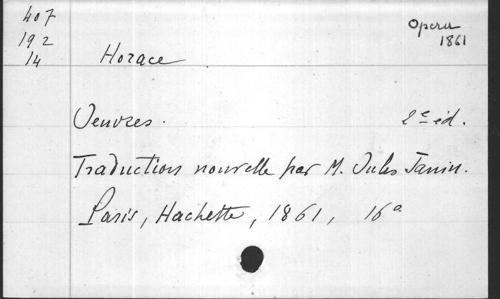 407
192
14
Opera
1861
Horace
Oeuvres. 2e éd.
Traduction nouvelle par M. Jules Janin.
Paris, Hachette, 1861, 16°